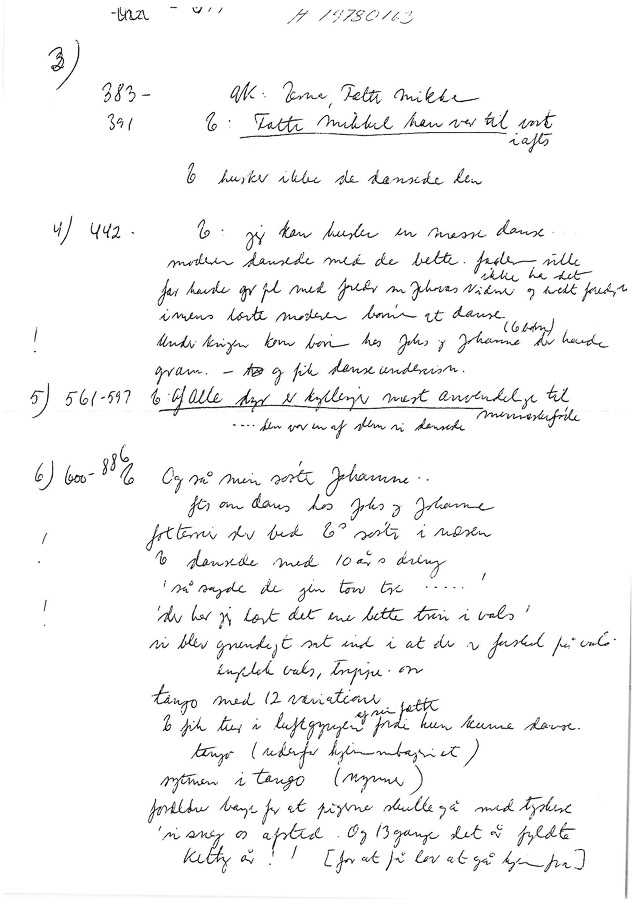 H 19780163
3)
383- QK: Tatter Mikke
391 E: Fatter Mikkel han var til vort
i aften
E husker ikke de dansede den
4) 442. E: jeg kan huske en masse danse...
moderen dansede med de bette. faderen ville
ikke ha det
far havde gr pl med Jehovas Vidner og
imens lærte moderen børn at danse
(6 børn)
! Under krigen kom børn hos Johs og Johanne der havde
gram. - og fik danseundervisn.
5) 561-597 E: Af alle dyr er kyllinger mest anvendelige til
menneskeføde
.... den var en af dem vi dansede
6) 600-886 E Og så min søster Johanne..
ftr om dans hos Johs og Johanne
! der bed E's søster i næsen
E dansede med 10 års dreng
'så sagde de jen tow tre ..... '
! 'der har jeg lært det ene bette trin i vals'
vi blev grundigt sat ind i at der er forskel på vals
engelsk vals, trippe- osv
tango med 12 variationer
af sin fatter
E fik tur i luftgyngen fordi hun kunne danse.
tango (
rytmen i tango (nynner)
forældre bange for at pigerne skulle gå med tyskere
'vi sneg os afsted. Og 13 gange det år fyldte
Ketty år! ! [for at få lov at gå hjemmefra]